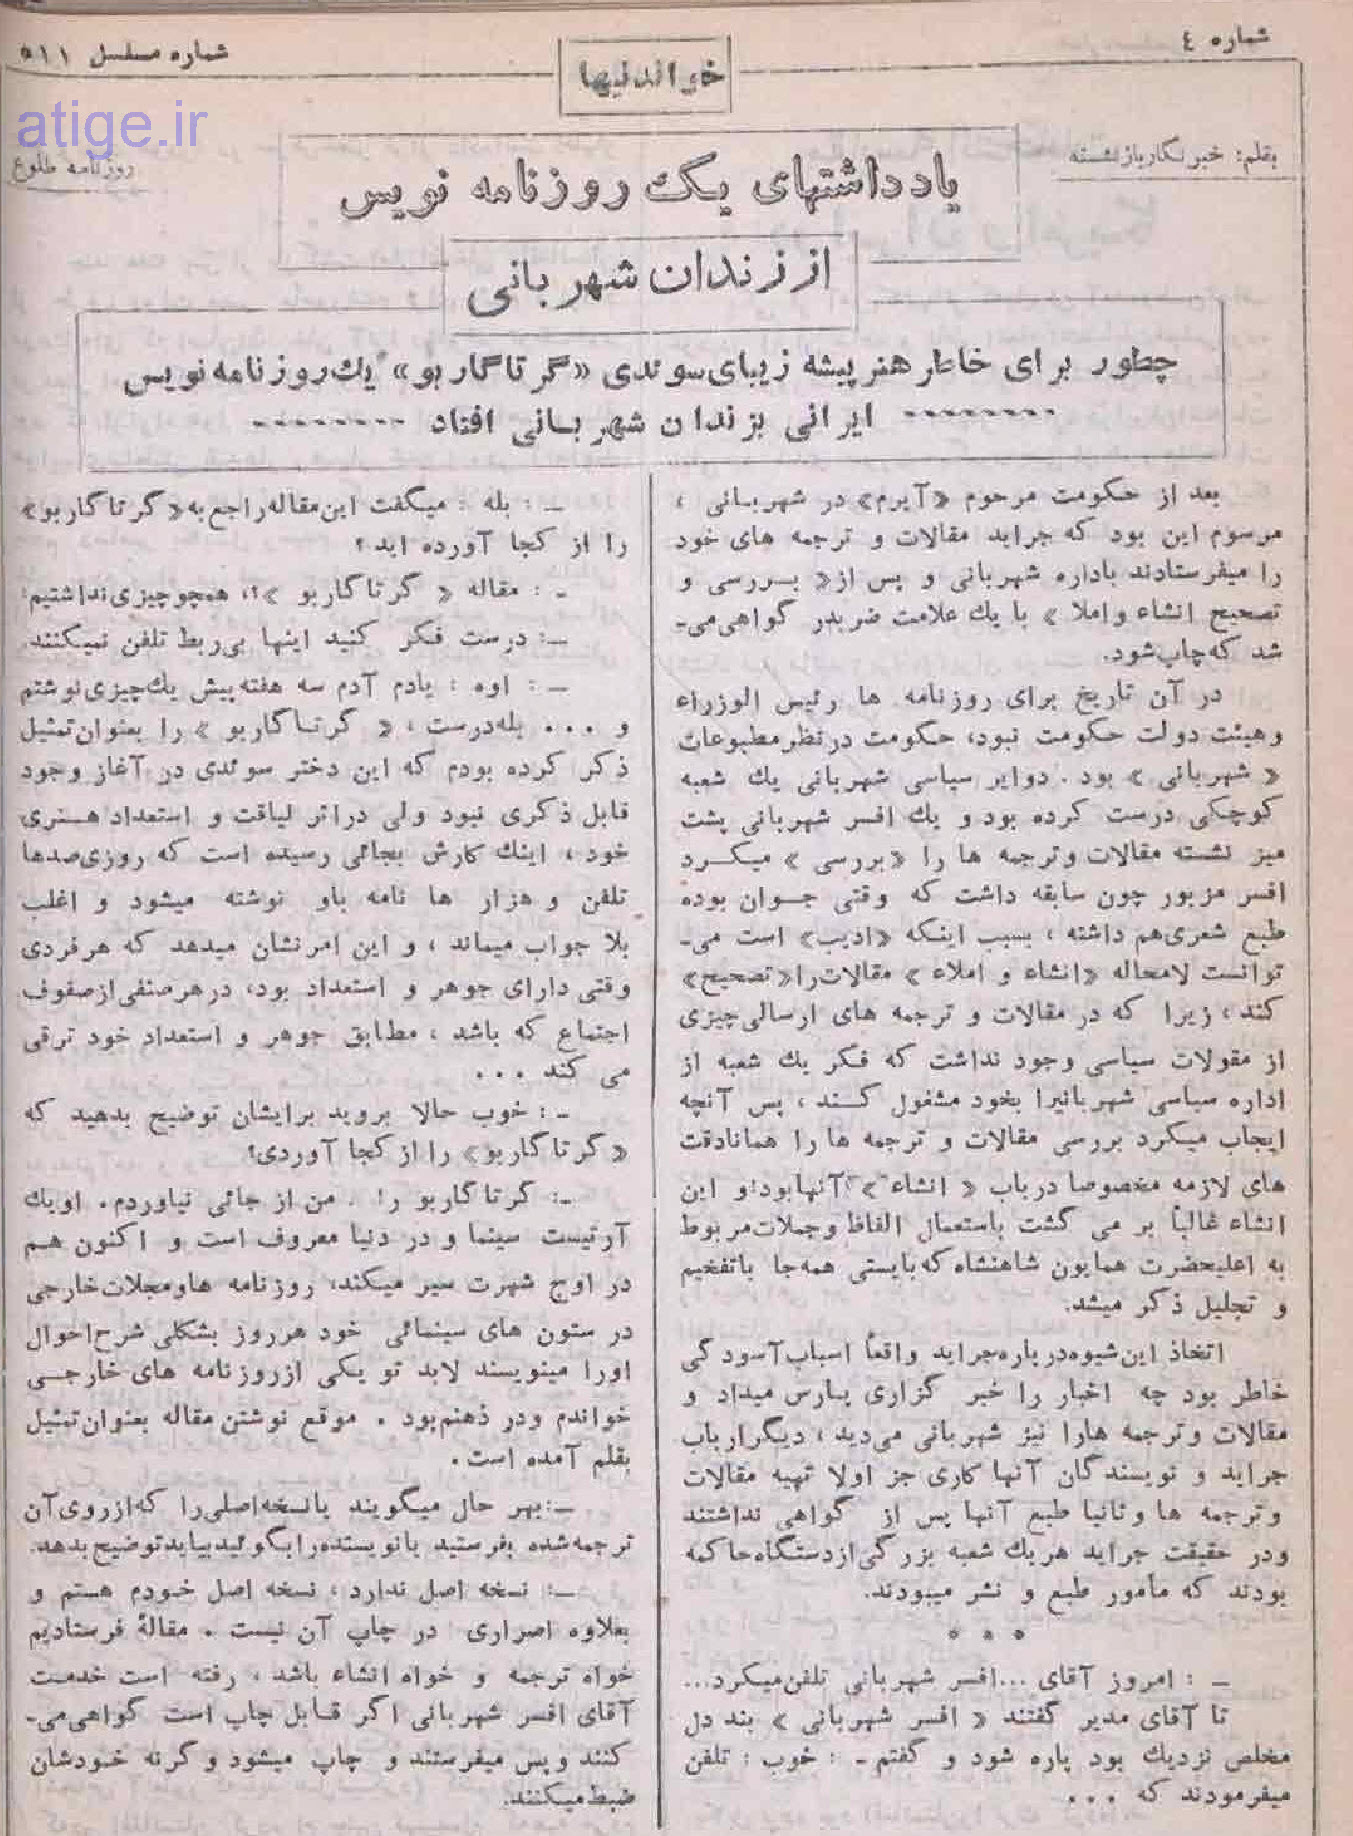 شماره ٤
خواندنیها
شماره مسلسل ٥١١
atige.ir
بقلم: خبرنگار بازنشسته
روزنامه طلوع
یادداشتهای یک روزنامه نویس
از زندان شهربانی
چطور برای خاطر هنرپیشه زیبای سوئدی «گرتا گاربو» یك روزنامه نویس
ایرانی بزندان شهربانی افتاد
بعد از حکومت مرحوم «آیرم» در شهربانی ،
مرسوم این بود که جراید مقالات و ترجمه های خود
را میفرستادند باداره شهربانی و پس از « بررسی و
تصحیح انشاء و املا » با یك علامت ضربدر گواهی می-
شد که چاپ شود.
در آن تاریخ برای روزنامه ها رئیس الوزراء
وهیئت دولت حکومت نبود، حکومت در نظر مطبوعات
« شهربانی » بود . دوایر سیاسی شهربانی یك شعبه
کوچکی درست کرده بود و یك افسر شهربانی پشت
میز نشسته مقالات و ترجمه ها را «بررسی» میکرد
افسر مزبور چون سابقه داشت که وقتی جوان بوده
طبع شعری هم داشته ، بسبب اینکه «ادیب» است می-
توانست لامحاله «انشاء و املاء» مقالات را «تصحیح»
کند ، زیرا که در مقالات و ترجمه های ارسالی چیزی
از مقولات سیاسی وجود نداشت که فکر یك شعبه از
اداره سیاسی شهربانیرا بخود مشغول کند ، پس آنچه
ایجاب میکرد بررسی مقالات و ترجمه ها را همانا دقت
های لازمه مخصوصا در باب « انشاء » آنها بود! و این
انشاء غالباً بر می گشت باستعمال الفاظ و جملات مربوط
به اعلیحضرت همایون شاهنشاه که بایستی همه جا با تفخیم
و تجلیل ذکر میشد.
اتخاذ این شیوه درباره جراید واقعاً اسباب آسودگی
خاطر بود چه اخبار را خبر گزاری پارس میداد و
مقالات و ترجمه هارا نیز شهربانی می دید ، دیگر ارباب
جراید و نویسندگان آنها کاری جز اولا تهیه مقالات
و ترجمه ها و ثانیا طبع آنها پس از گواهی نداشتند
ودر حقیقت جراید هریك شعبه بزرگی از دستگاه حاکمه
بودند که مأمور طبع و نشر میبودند.
* * *
- : امروز آقای ...افسر شهربانی تلفن میکرد...
تا آقای مدیر گفتند « افسر شهربانی » بند دل
مخلص نزدیك بود پاره شود و گفتم - : خوب : تلفن
میفرمودند که . . .
- : بله : میگفت این مقاله راجع به «گرتا گاربو»
را از کجا آورده اید ؟
- : مقاله « گرتا گاربو »؟، همچو چیزی نداشتیم!
- : درست فکر کنید اینها بی ربط تلفن نمیکنند.
- : اوه : یادم آدم سه هفته پیش یك چیزی نوشتم
و . . . بله درست ، « گرتا گاربو » را بعنوان تمثیل
ذکر کرده بودم که این دختر سوئدی در آغاز وجود
قابل ذکری نبود ولی در اثر لیاقت و استعداد هنری
خود ، اینك کارش بجائی رسیده است که روزی صدها
تلفن و هزار ها نامه باو نوشته میشود و اغلب
بلا جواب میماند ، و این امر نشان میدهد که هر فردی
وقتی دارای جوهر و استعداد بود، در هر صنفی از صفوف
اجتماع که باشد ، مطابق جوهر و استعداد خود ترقی
می کند . . .
- : خوب حالا بروید برایشان توضیح بدهید که
«گرتا گاربو» را از کجا آوردی؟
- : گرتا گاربو را! . من از جائی نیاوردم. او یك
آرتیست سینما و در دنیا معروف است و اکنون هم
در اوج شهرت سیر میکند، روزنامه ها و مجلات خارجی
در ستون های سینمائی خود هر روز بشکلی شرح احوال
اورا مینویسند لابد تو یکی از روزنامه های خارجی
خواندم ودر ذهنم بود . موقع نوشتن مقاله بعنوان تمثیل
بقلم آمده است.
- : بهر حال میگویند یا نسخه اصلی را که از روی آن
ترجمه شده بفرستید یا نویسنده را بگوئید بیاید توضیح بدهد.
- : نسخه اصل ندارد ، نسخه اصل خودم هستم و
بعلاوه اصراری در چاپ آن نیست . مقالهٔ فرستادیم
خواه ترجمه و خواه انشاء باشد ، رفته است خدمت
آقای افسر شهربانی اگر قابل چاپ است گواهی می-
کنند و پس میفرستند و چاپ میشود و گرنه خودشان
ضبط میکنند.